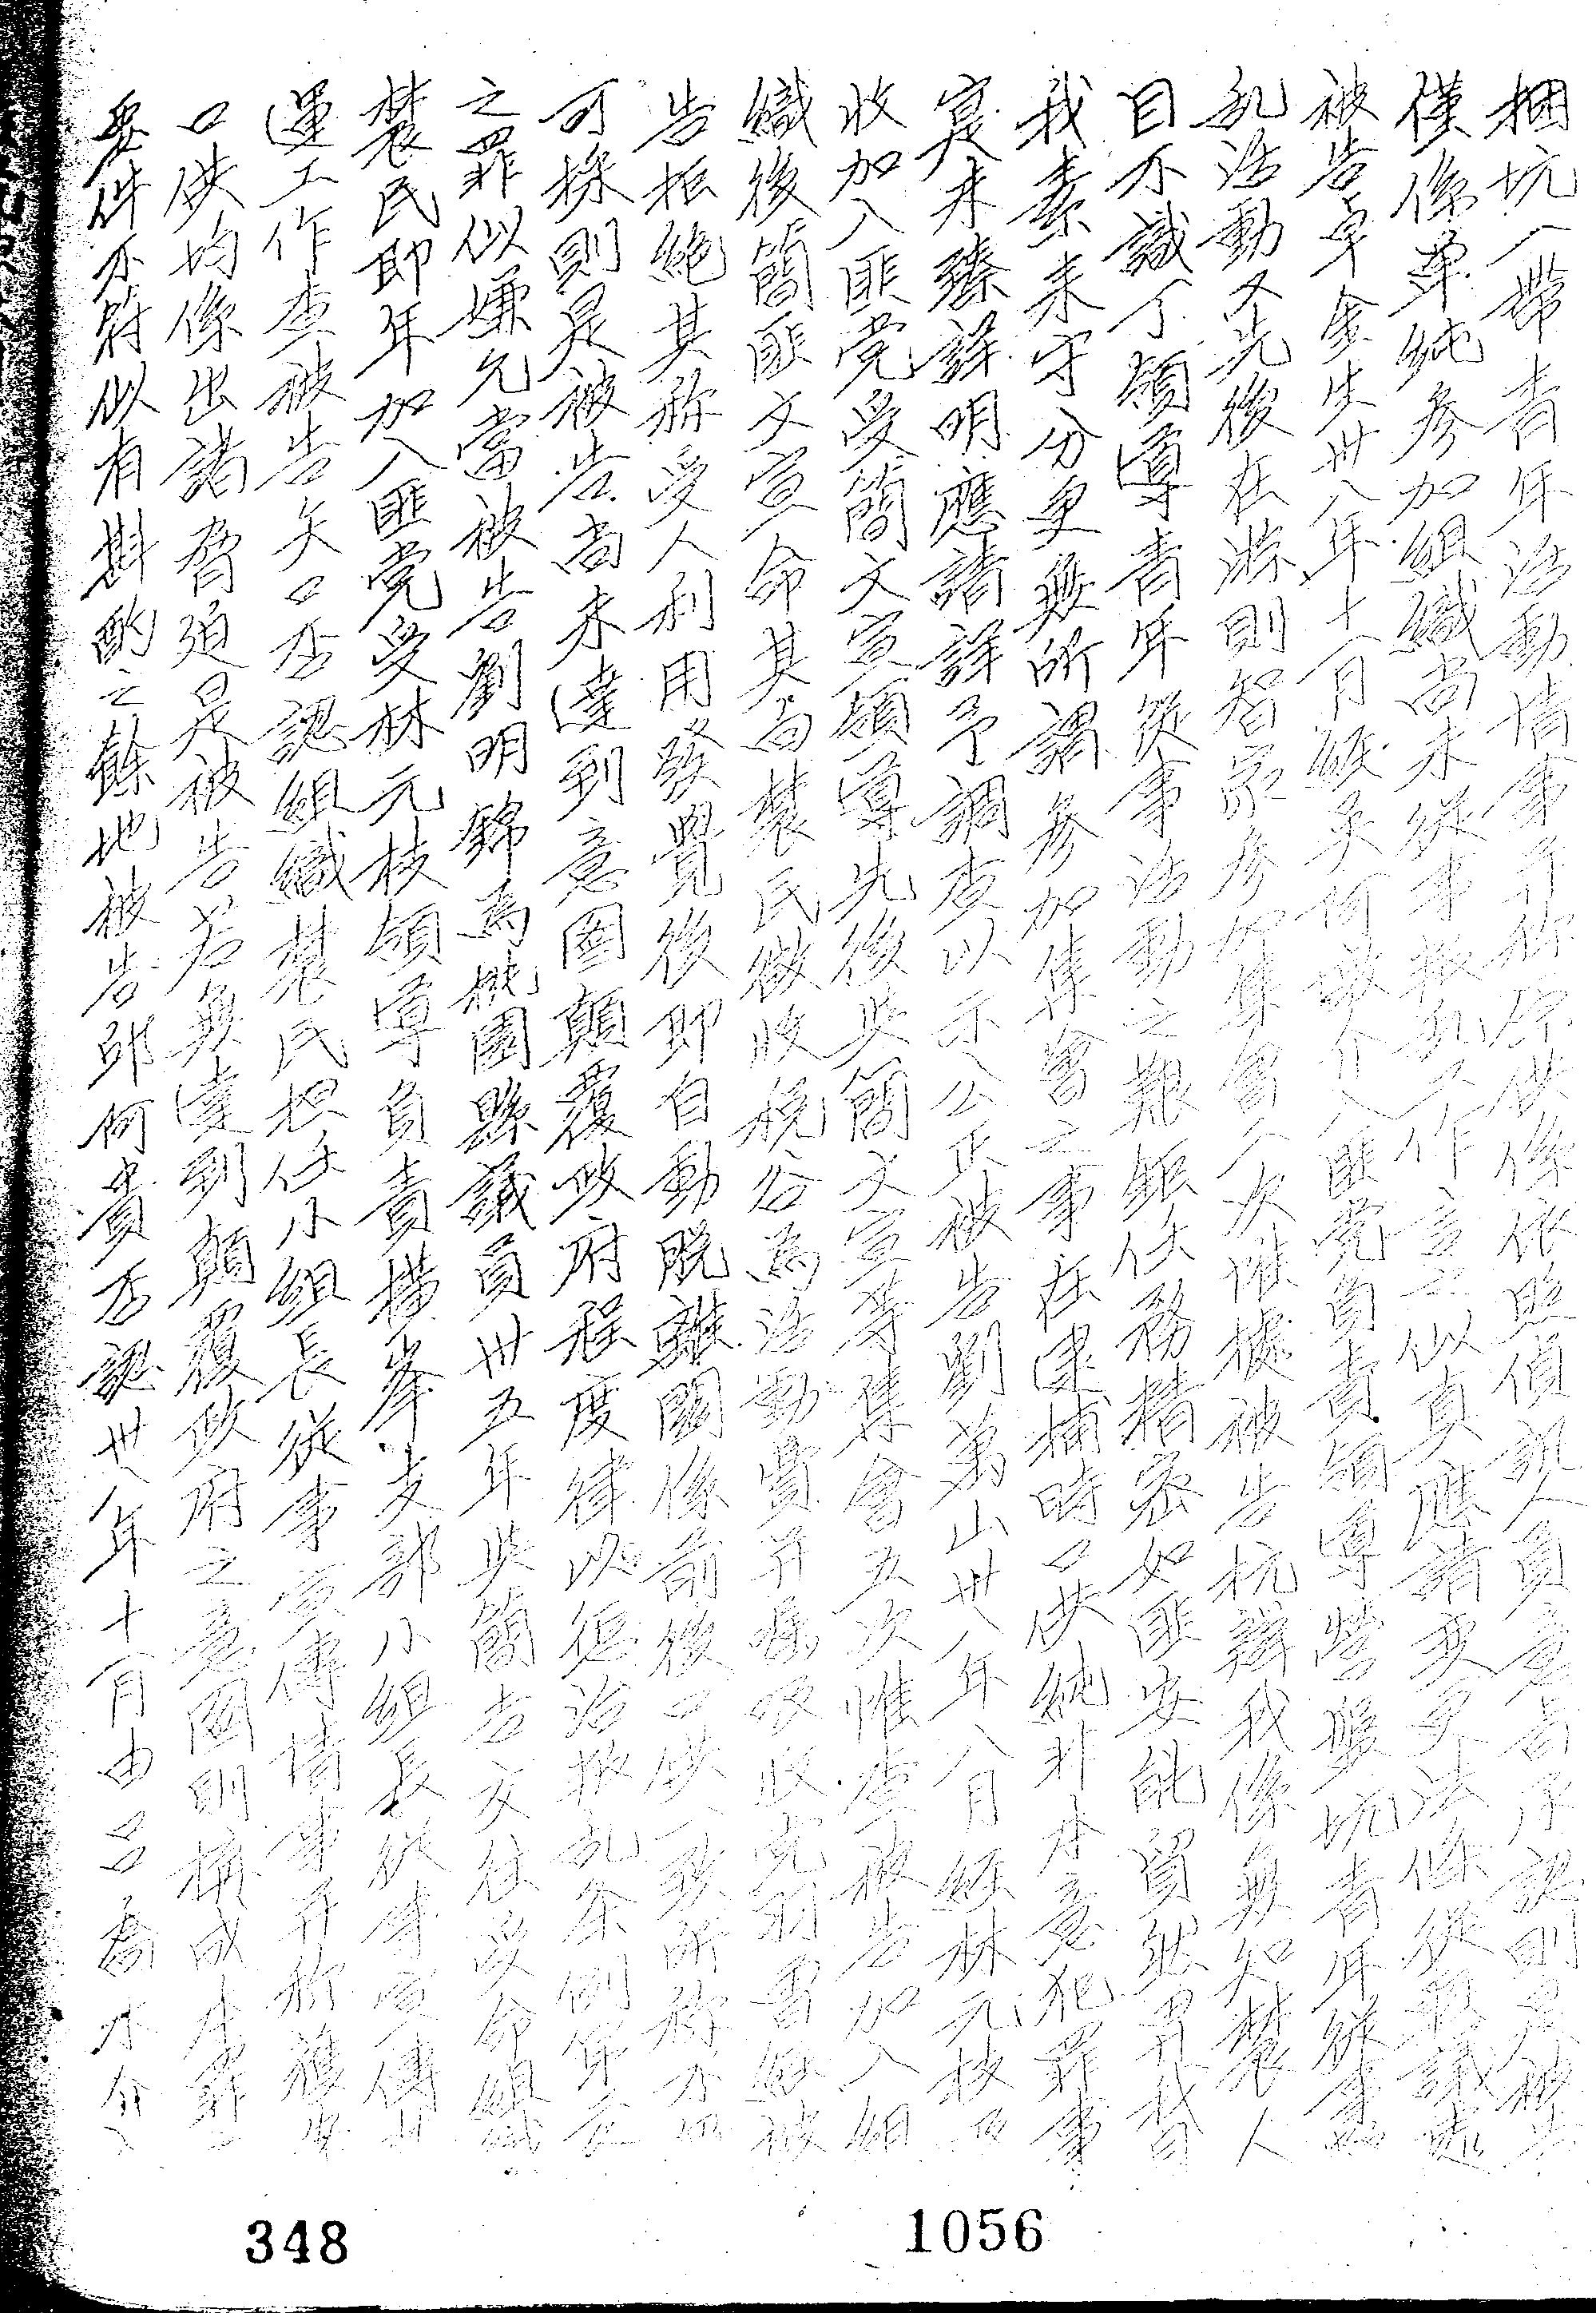 捆坑一帶青年活動情事并称原供係依照偵訊人員意旨承認則是被告
僅係單純參加組織尚未從事叛乱工作言之似真應請變更法條從輕議處
被告卓金生卅八年十一月經呂何敬介入匪党負責領導營盤坑青年從事叛
乱活動又先後在游則智家參加集會一次惟據被告抗辯我係無知農人
目不識丁領導青年從事活動之艱鉅任務精密如匪安能貿然畀我
我素來守分更無所謂參加集會之事在逮捕時口供純非本意犯罪事
實未臻詳明應請詳予調查以示公正被告劉萬山卅八年八月經林元枝
收加入匪党受簡文宣領導先後與簡文宣等集會五次惟查被告加入組
織後簡匪文宣命其向農民繳收税谷為活動費并為吸收党羽曾經被
告拒絕其称受人利用發覺後即自動脱離關係前後口供一致所称亦
可採則是被告尚未達到意圖顛覆政府程度律以懲治叛乱条例第五条
之罪似嫌允當被告劉明錦為桃園縣議員卅五年與簡吉交往受命組織
農民即年加入匪党受林元枝領導負責橫峯支部小組長從事宣傳
運工作查被告矢口否認組織農民担任小組長從事宣傳情事并称禮
口供均係出諸脅迫是被告若無達到顛覆政府之意圖則構成本罪之
要件不符似有斟酌之餘地被告邱何貴否認卅八年十一月由呂喬木介